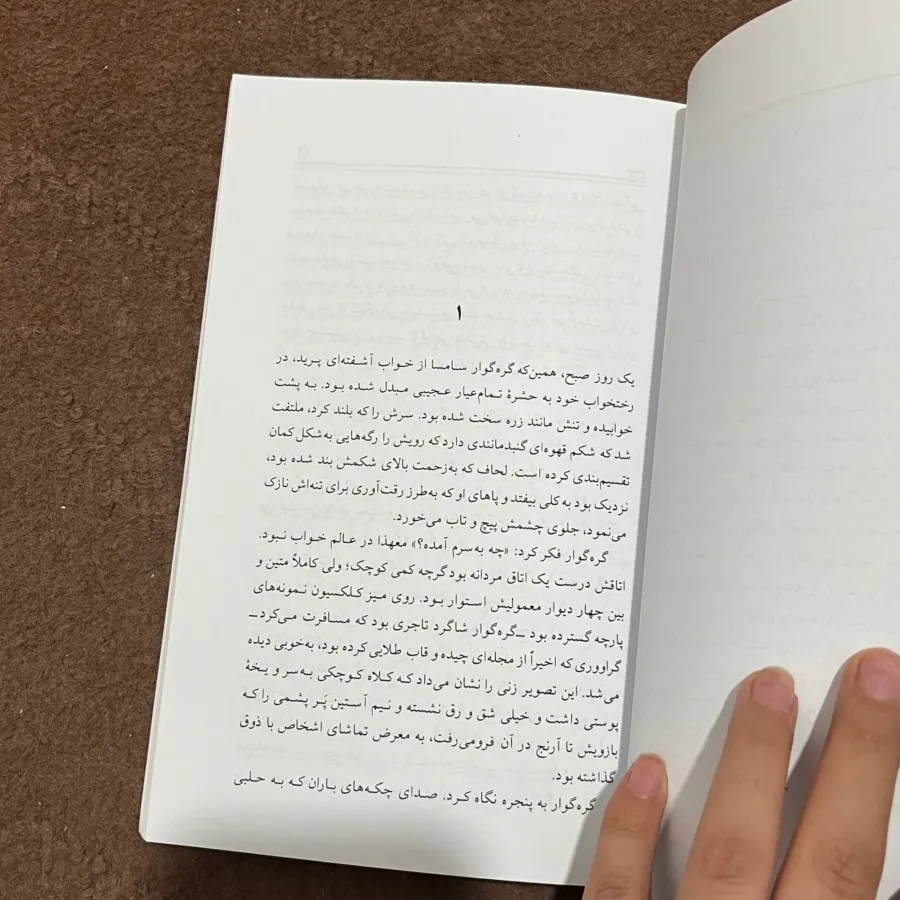 ۱
یک روز صبح، همین‌که گره‌گوار سامسا از خواب آشفته‌ای پرید، در
رختخواب خود به حشرهٔ تمام‌عیار عجیبی مبدل شده بود. به پشت
خوابیده و تنش مانند زره سخت شده بود. سرش را که بلند کرد، ملتفت
شد که شکم قهوه‌ای گنبدمانندی دارد که رویش را رگه‌هایی به‌شکل کمان
تقسیم‌بندی کرده است. لحاف که به‌زحمت بالای شکمش بند شده بود،
نزدیک بود به‌کلی بیفتد و پاهای او که به‌طرز رقت‌آوری برای تنه‌اش نازک
می‌نمود، جلوی چشمش پیچ و تاب می‌خورد.
گره‌گوار فکر کرد: «چه به‌سرم آمده؟» معهذا در عالم خواب نبود.
اتاقش درست یک اتاق مردانه بود گرچه کمی کوچک؛ ولی کاملاً متین و
بین چهار دیوار معمولیش استوار بود. روی میز کلکسیون نمونه‌های
پارچه گسترده بود ــ گره‌گوار شاگرد تاجری بود که مسافرت می‌کرد ــ
گراووری که اخیراً از مجله‌ای چیده و قاب طلایی کرده بود، به‌خوبی دیده
می‌شد. این تصویر زنی را نشان می‌داد که کلاه کوچکی به‌سر و یخهٔ
پوستی داشت و خیلی شق و رق نشسته و نیم آستین پَر پشمی را که
بازویش تا آرنج در آن فرومی‌رفت، به معرض تماشای اشخاص با ذوق
گذاشته بود.
گره‌گوار به پنجره نگاه کرد. صدای چکه‌های باران که به حلبی